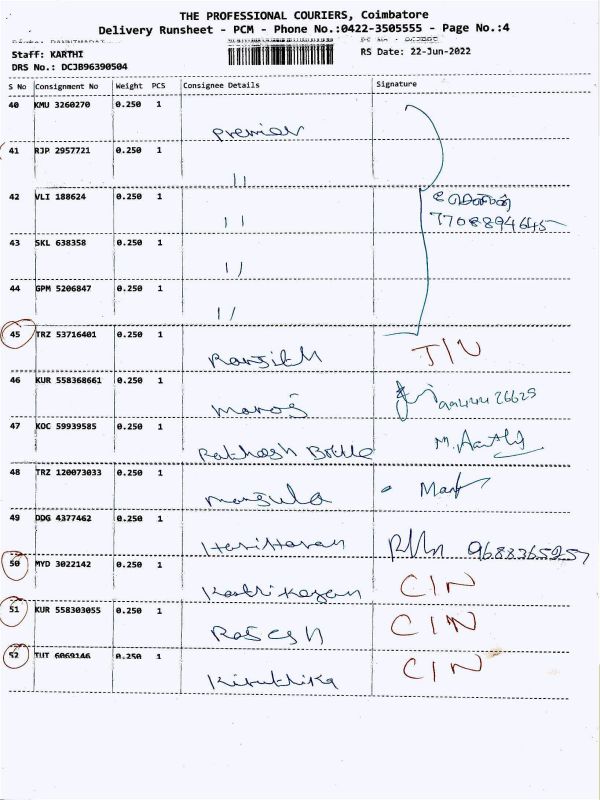 THE PROFESSIONAL COURIERS, Coimbatore
Delivery Runsheet - PCM - Phone No.:0422-3505555 - Page No.:4
Staff: KARTHI RS Date: 22-Jun-2022
DRS No.: DCJB96390504
S No Consignment No Weight PCS Consignee Details Signature
40 KMU 3260270 0.250 1
Premier
41 RJP 2957721 0.250 1
11
42 VLI 188624 0.250 1
7708894645
11
43 SKL 638358 0.250 1
11
44 GPM 5206847 0.250 1
11
45 TRZ 53716401 0.250 1
Ranjith
46 KUR 558368661 0.250 1
Manoj 9944426625
47 KOC 59939585 0.250 1
M. Aarthy
48 TRZ 120073033 0.250 1
Manjula
49 DDG 4377462 0.250 1
Hariharan 9688365257
50 MYD 3022142 0.250 1
Karthikeyan CIN
51 KUR 558303055 0.250 1
Rajesh CIN
52 TUT 6069146 0.250 1
Kiruthika CIN